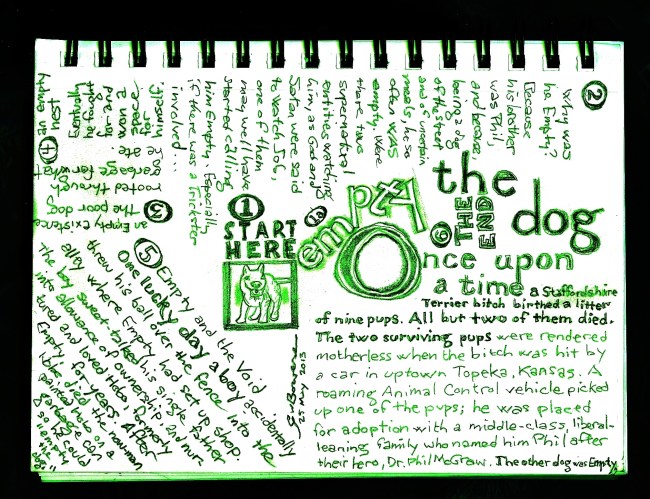 the
empty
dog
1
START
HERE
Once upon
a time a Staffordshire
Terrier bitch birthed a litter
of nine pups. All but two of them died.
The two surviving pups were rendered
motherless when the bitch was hit by
a car in uptown Topeka, Kansas. A
roaming Animal Control vehicle picked
up one of the pups; he was placed
for adoption with a middle-class, liberal-
leaning family who named him Phil after
their hero, Dr. Phil McGraw. The other dog was Empty.
2
Why was
he Empty?
Because
his brother
was Phil
and because,
being a dog
of the street
and of uncertain
meals, he so
often WAS
empty. Were
there two
supernatural
entities watching
him, as God and
Satan were said
to watch Job,
one of them
may well have
started calling
him Empty, Especially
if there was a Trickster
involved...
3
an Empty Existence
the poor dog
rooted through
garbage for what
he ate
4
an empty
nest
Eventually
he fought
space
for
5
Empty and the Void
One lucky day a boy accidentally
threw his ball over the fence into the
alley where Empty had set up shop.
the boy sweet-talked his single father
into allowance of ownership, and nur-
tured and loved formerly
Empty for years. After
died the human
painted on a
garbage can
so he could
empty
THE
END
25 May 2013